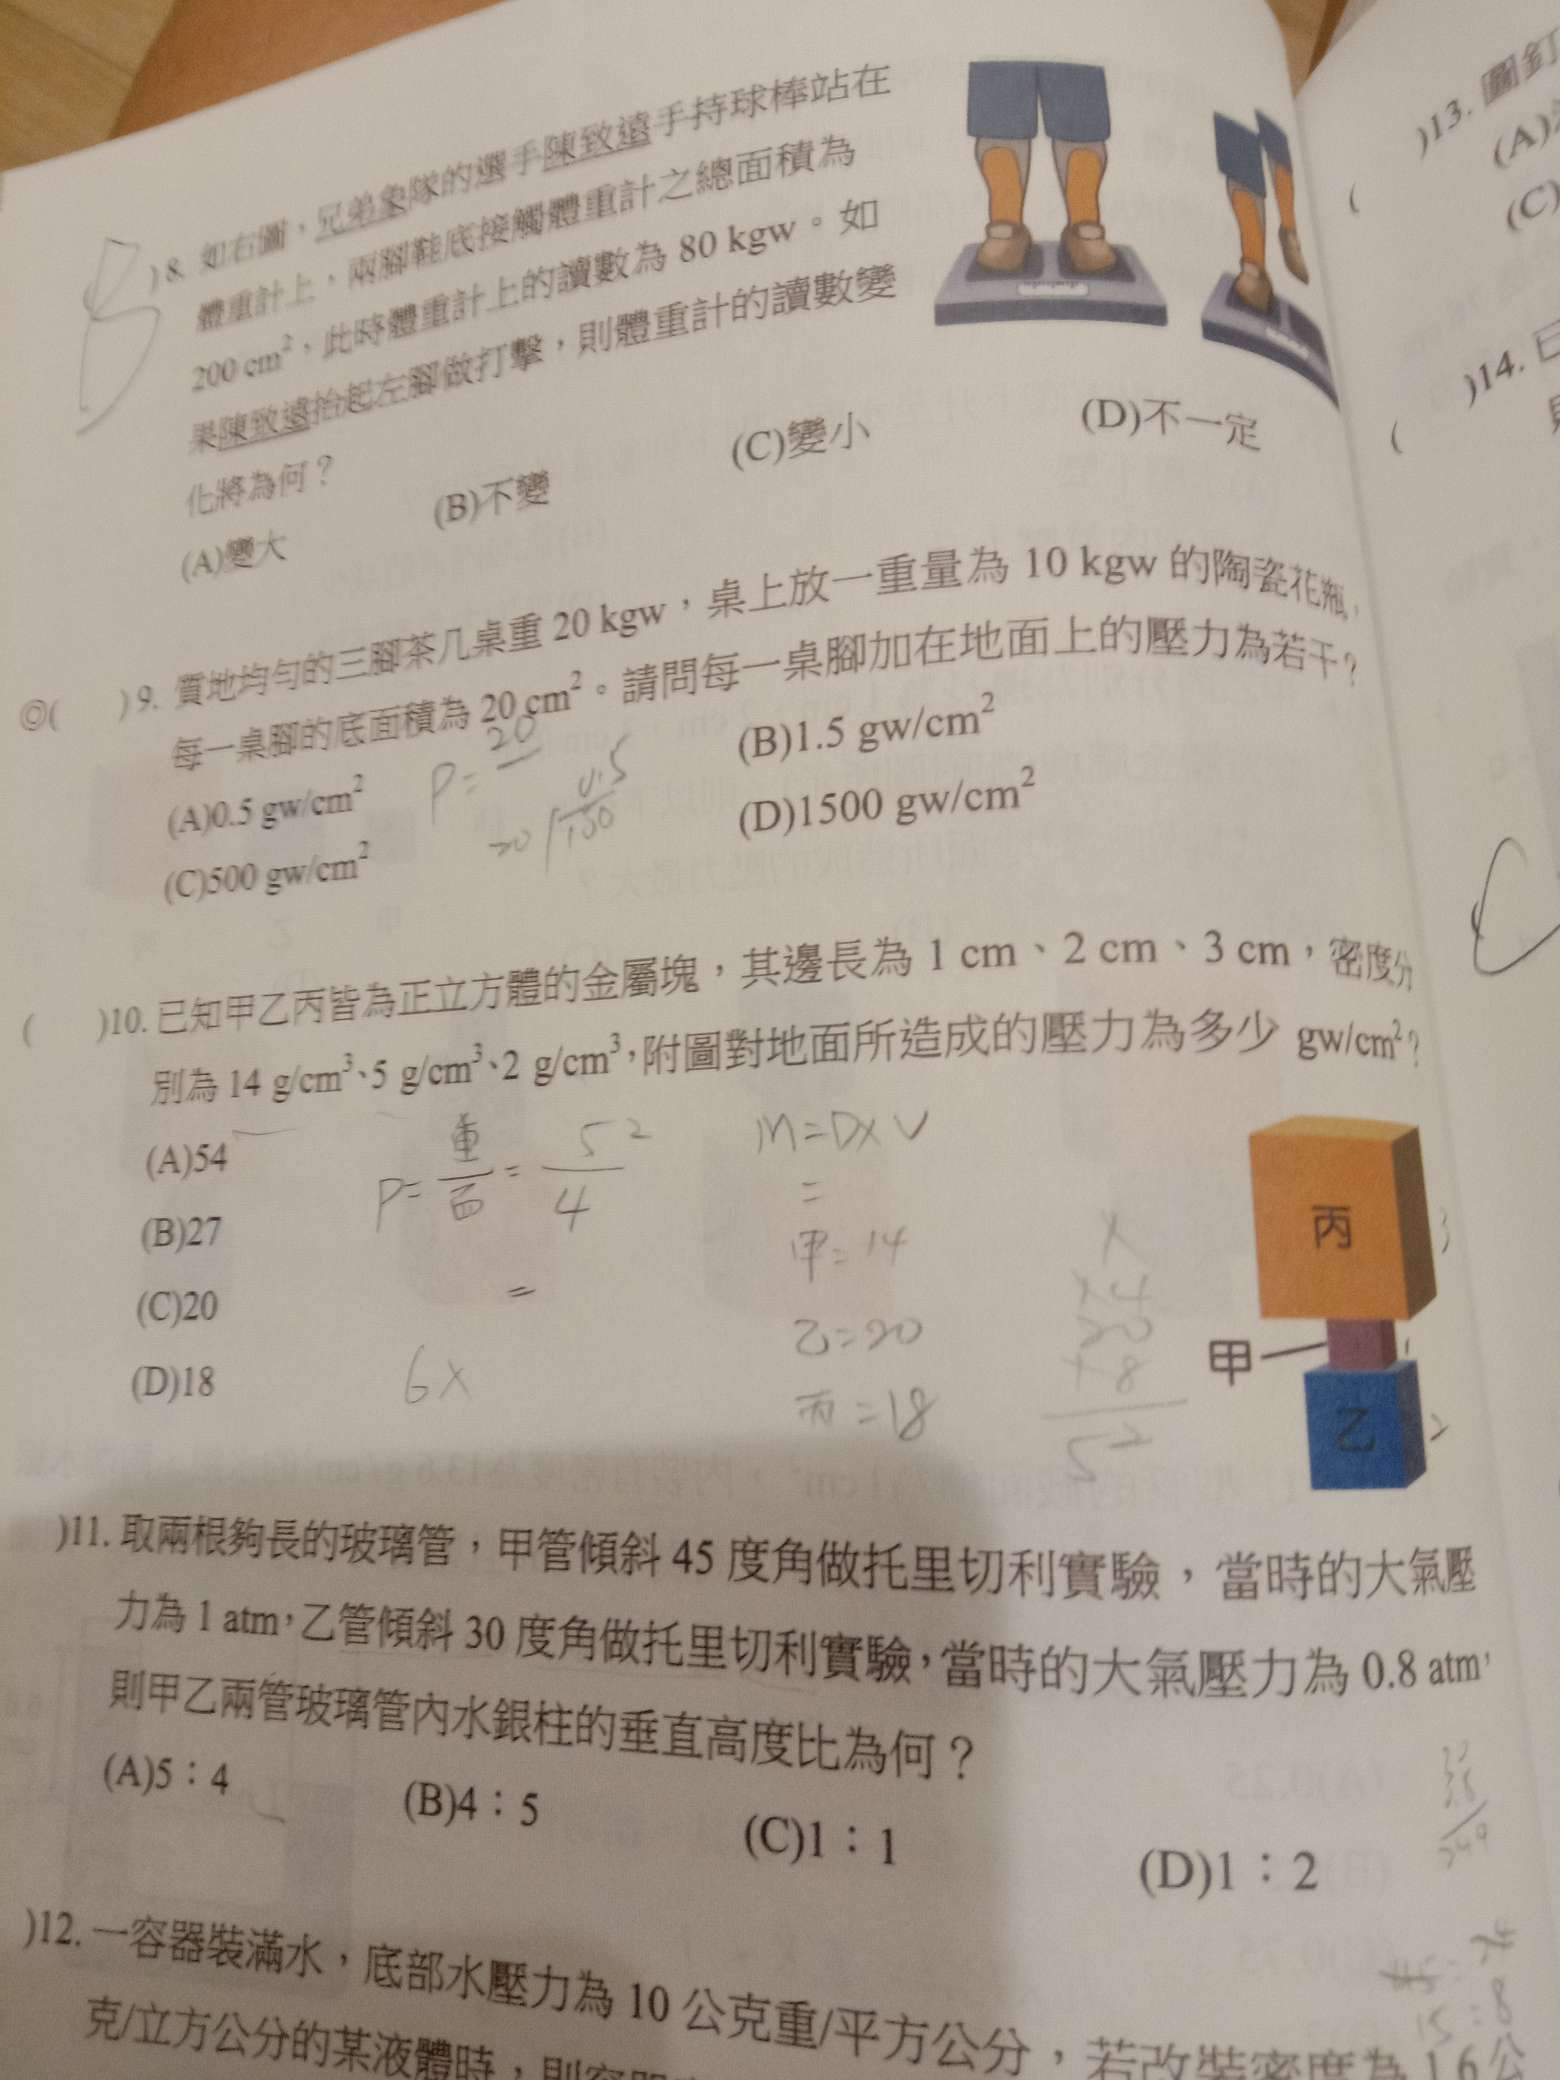 )8. 如右圖，兄弟象隊的選手陳致遠手持球棒站在
體重計上，兩腳鞋底接觸體重計之總面積為
200 cm²，此時體重計上的讀數為 80 kgw。如
果陳致遠抬起左腳做打擊，則體重計的讀數變
化將為何？
(A)變大 (B)不變 (C)變小 (D)不一定
◎( )9. 質地均勻的三腳茶几桌重 20 kgw，桌上放一重量為 10 kgw 的陶瓷花瓶，
每一桌腳的底面積為 20 cm²。請問每一桌腳加在地面上的壓力為若干？
(A)0.5 gw/cm² (B)1.5 gw/cm²
(C)500 gw/cm² (D)1500 gw/cm²
P= 20
20 150 0.5
( )10. 已知甲乙丙皆為正立方體的金屬塊，其邊長為 1 cm、2 cm、3 cm，密度分
別為 14 g/cm³、5 g/cm³、2 g/cm³，附圖對地面所造成的壓力為多少 gw/cm²？
(A)54
(B)27
(C)20
(D)18
P= 重/面 = 52/4
=
6x
M=D×V
=
甲=14
乙=20
丙=18
52
丙
甲
乙
3
1
2
)11. 取兩根夠長的玻璃管，甲管傾斜 45 度角做托里切利實驗，當時的大氣壓
力為 1 atm，乙管傾斜 30 度角做托里切利實驗，當時的大氣壓力為 0.8 atm，
則甲乙兩管玻璃管內水銀柱的垂直高度比為何？
(A)5：4 (B)4：5 (C)1：1 (D)1：2
)12. 一容器裝滿水，底部水壓力為 10 公克重/平方公分，若改裝密度為 1.6 公
克/立方公分的某液體時，則容
)13. 圖釘
(A)
(C)
( )14. 已
(
C